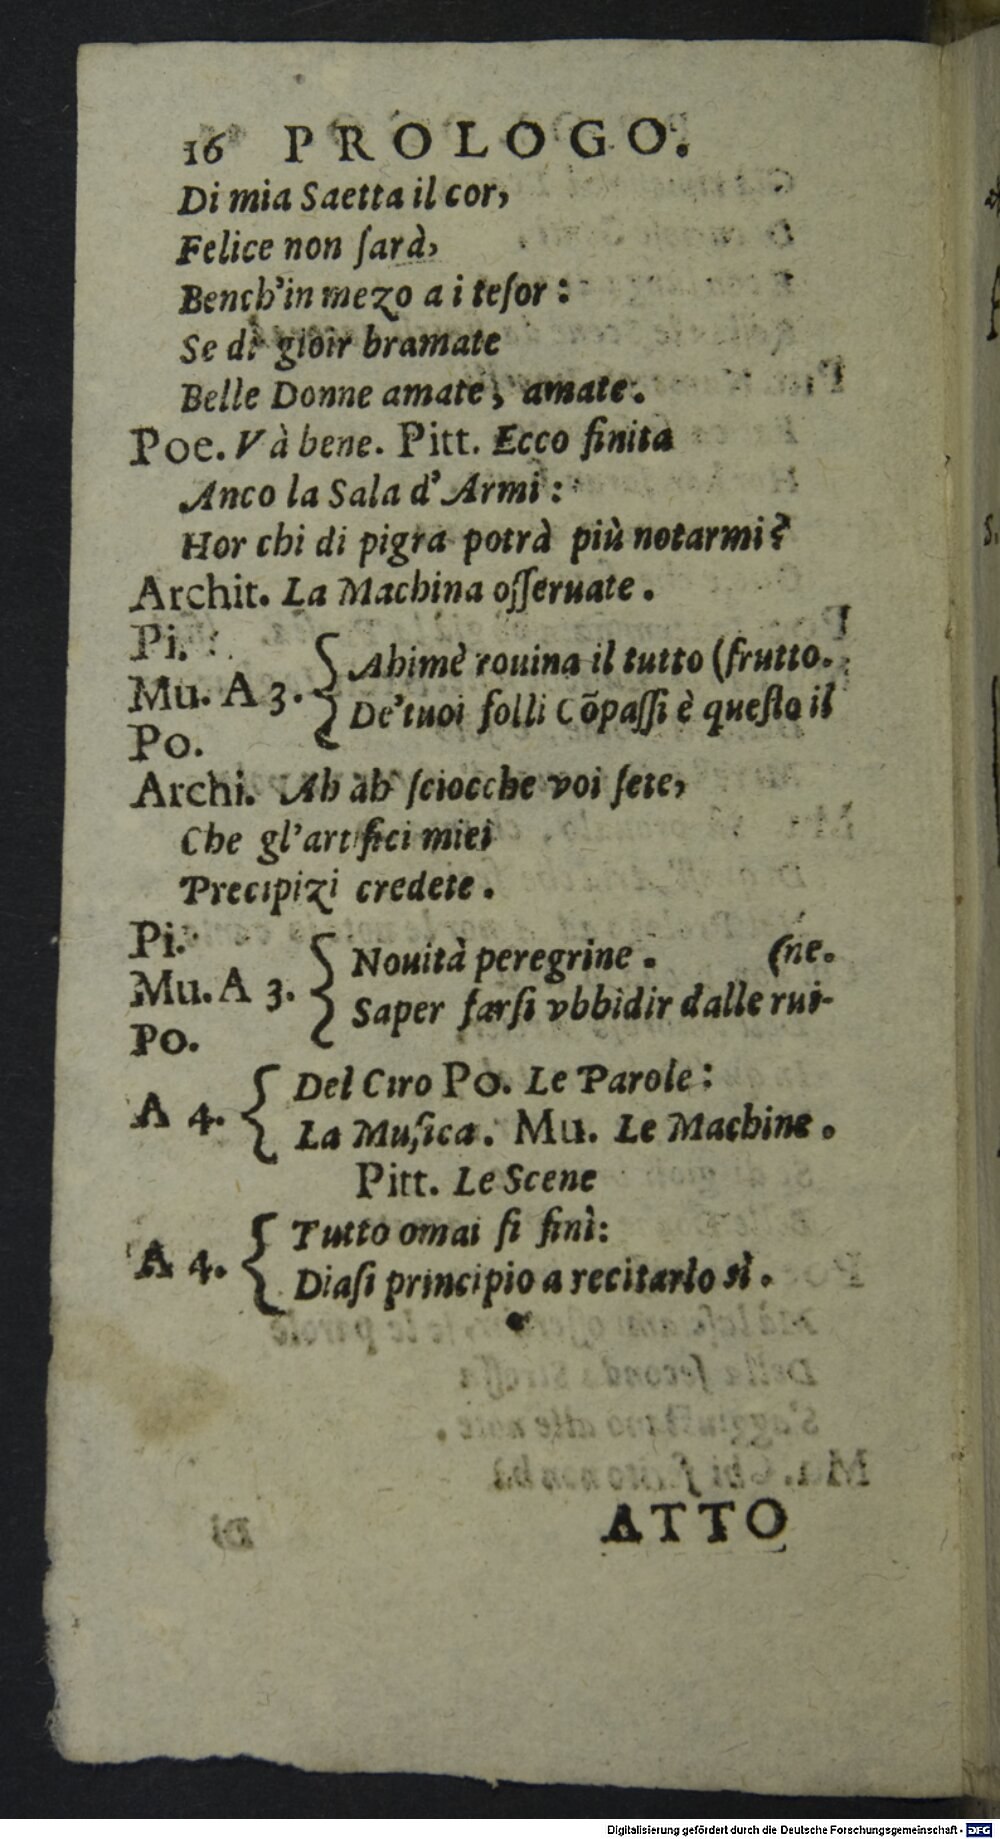 16 PROLOGO.
Di mia Saetta il cor,
Felice non ſarà,
Bench'in mezo a i teſor :
Se di gioir bramate
Belle Donne amate, amate.
Poe. Và bene. Pitt. Ecco finita
Anco la Sala d'Armi :
Hor chi di pigra potrà più notarmi?
Archit. La Machina oſſeruate.
Pi.
Mu. A 3. { Ahimè rouina il tutto (frutto.
De'tuoi folli Cõpaſſi è queſto il
Po.
Archi. Ah ah ſciocche voi ſete,
Che gl'artifici miei
Precipizi credete.
Pi.
Mu. A 3. { Nouità peregrine. (ne.
Saper farſi vbbidir dalle rui-
Po.
A 4. { Del Ciro Po. Le Parole :
La Muſica. Mu. Le Machine.
Pitt. Le Scene
A 4. { Tutto omai ſi finì:
Diaſi principio a recitarlo sì.
ATTO
Digitalisierung gefördert durch die Deutsche Forschungsgemeinschaft - DFG